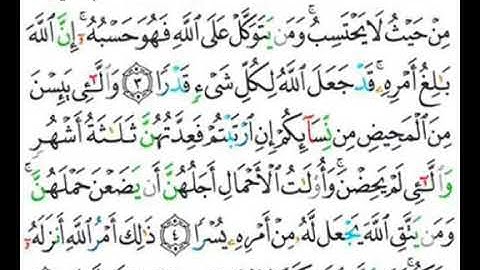 مِنْ حَيْثُ لَا يَحْتَسِبُ ۚ وَمَن يَتَوَكَّلْ عَلَى اللَّهِ فَهُوَ حَسْبُهُ ۚ إِنَّ اللَّهَ
بَـٰلِغُ أَمْرِهِ ۚ قَدْ جَعَلَ اللَّهُ لِكُلِّ شَىْءٍ قَدْرًا ۝٣ وَالَّـٰٓـِٔى يَئِسْنَ
مِنَ الْمَحِيضِ مِن نِّسَآئِكُمْ إِنِ ارْتَبْتُمْ فَعِدَّتُهُنَّ ثَلَـٰثَةُ أَشْهُرٍ
وَالَّـٰٓـِٔى لَمْ يَحِضْنَ ۚ وَأُولَـٰتُ الْأَحْمَالِ أَجَلُهُنَّ أَن يَضَعْنَ حَمْلَهُنَّ ۚ
وَمَن يَتَّقِ اللَّهَ يَجْعَل لَّهُ مِنْ أَمْرِهِ يُسْرًا ۝٤ ذَٰلِكَ أَمْرُ اللَّهِ أَنزَلَهُ